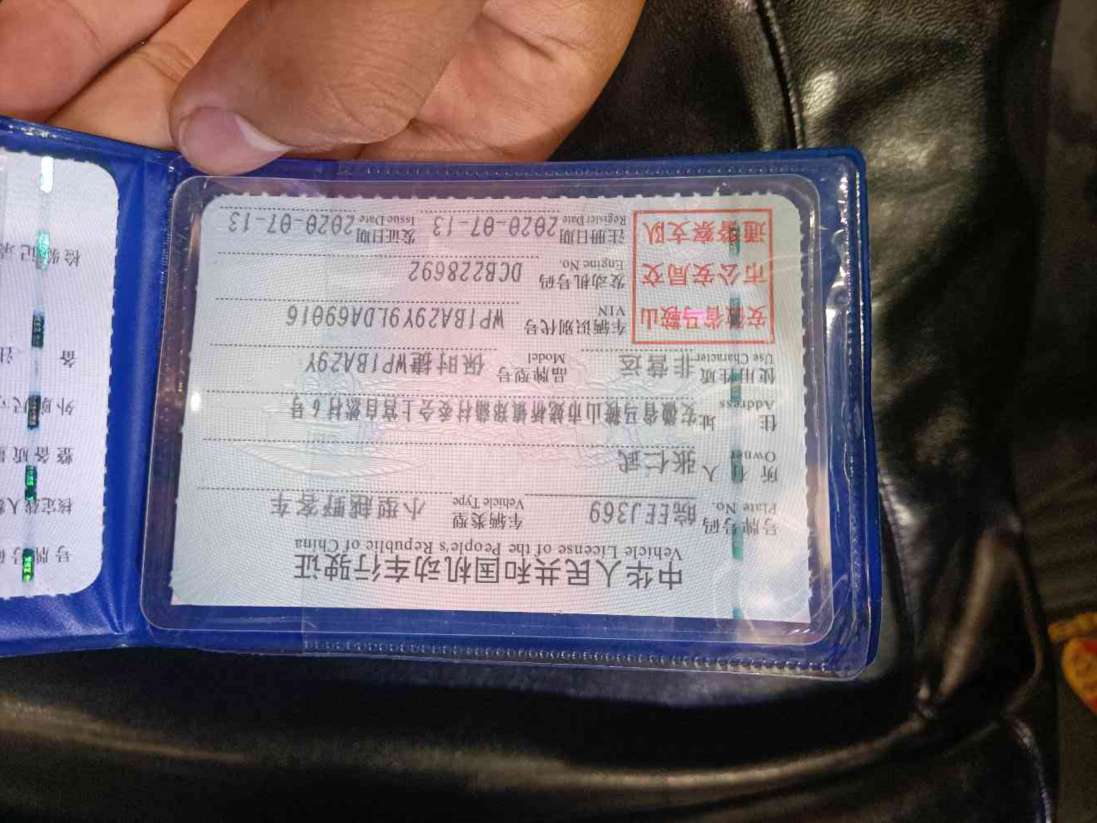 中华人民共和国机动车行驶证
Vehicle License of the People's Republic of China
号牌号码 皖EEJ369 车辆类型 小型越野客车
Plate No. Vehicle Type
所有人 张仁武
Owner
住址 安徽省马鞍山市
Address
使用性质 非营运 品牌型号 保时捷WP1BA29Y
Use Character Model
安徽省马鞍山市公安局交通警察支队
车辆识别代号 WP1BA29Y9LDA69016
VIN
发动机号码 DCB228692
Engine No.
注册日期 2020-07-13 发证日期 2020-07-13
Register Date Issue Date
号牌号
核定载人
整备质
外廓尺
备 注
检验记录